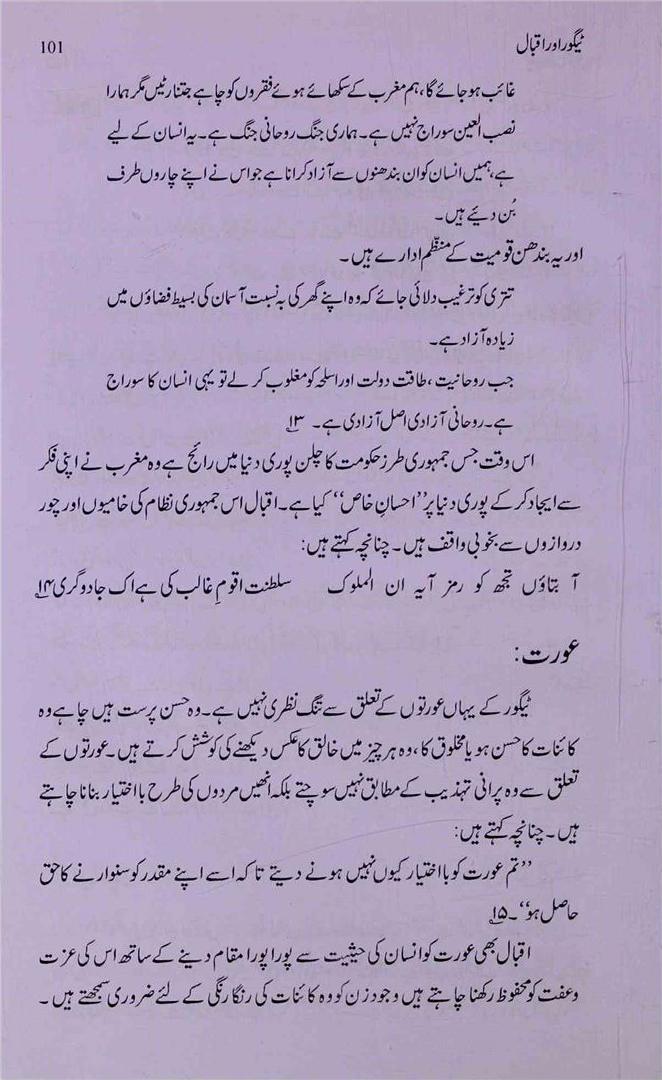 ٹیگور اور اقبال 101
غائب ہو جائے گا، ہم مغرب کے سکھائے ہوئے فقروں کو چاہے جتنا رٹیں مگر ہمارا
نصب العین سوراج نہیں ہے۔ ہماری جنگ روحانی جنگ ہے۔ یہ انسان کے لیے
ہے، ہمیں انسان کو ان بندھنوں سے آزاد کرانا ہے جو اس نے اپنے چاروں طرف
بُن دیئے ہیں۔
اور یہ بندھن قومیت کے منظّم ادارے ہیں۔
تتری کو ترغیب دلائی جائے کہ وہ اپنے گھر کی بہ نسبت آسمان کی بسیط فضاؤں میں
زیادہ آزاد ہے۔
جب روحانیت، طاقت دولت اور اسلحہ کو مغلوب کر لے تو یہی انسان کا سوراج
ہے۔ روحانی آزادی اصل آزادی ہے۔ ۱۳
اس وقت جس جمہوری طرز حکومت کا چلن پوری دنیا میں رائج ہے وہ مغرب نے اپنی فکر
سے ایجاد کر کے پوری دنیا پر ’’احسانِ خاص‘‘ کیا ہے۔ اقبال اس جمہوری نظام کی خامیوں اور چور
دروازوں سے بخوبی واقف ہیں۔ چنانچہ کہتے ہیں:
آ بتاؤں تجھ کو رمز آیہ ان الملوک سلطنت اقوامِ غالب کی ہے اک جادوگری ۱۴
عورت:
ٹیگور کے یہاں عورتوں کے تعلق سے تنگ نظری نہیں ہے۔ وہ حسن پرست ہیں چاہے وہ
کائنات کا حسن ہو یا مخلوق کا، وہ ہر چیز میں خالق کا عکس دیکھنے کی کوشش کرتے ہیں۔ عورتوں کے
تعلق سے وہ پرانی تہذیب کے مطابق نہیں سوچتے بلکہ انھیں مردوں کی طرح با اختیار بنانا چاہتے
ہیں۔ چنانچہ کہتے ہیں:
’’تم عورت کو با اختیار کیوں نہیں ہونے دیتے تا کہ اسے اپنے مقدر کو سنوارنے کا حق
حاصل ہو‘‘۔ ۱۵
اقبال بھی عورت کو انسان کی حیثیت سے پورا پورا مقام دینے کے ساتھ اس کی عزت
وعفت کو محفوظ رکھنا چاہتے ہیں وجود زن کو وہ کائنات کی رنگا رنگی کے لئے ضروری سمجھتے ہیں۔